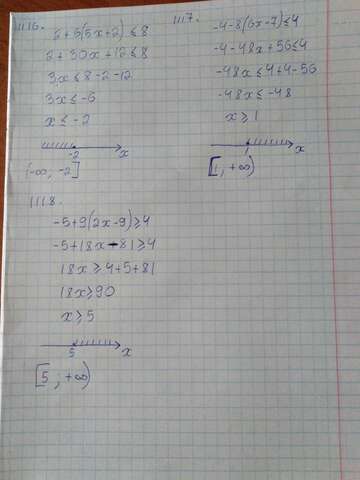 1116.
2+6(5x+2)≤8
2+30x+12≤8
3x≤8-2-12
3x≤-6
x≤-2
-2 x
(-∞, -2]
1117.
-4-8(6x-7)≤4
-4-48x+56≤4
-48x≤4+4-56
-48x≤-48
x≥1
1 x
[1, +∞)
1118.
-5+9(2x-9)≥4
-5+18x-81≥4
18x≥4+5+81
18x≥90
x≥5
5 x
[5; +∞)